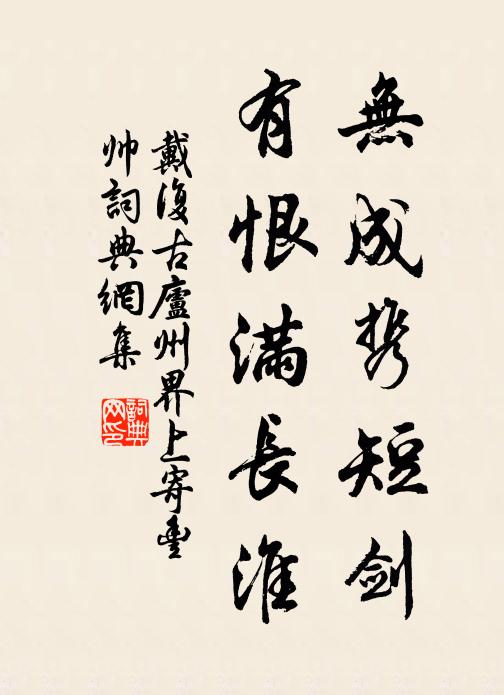 無成携短剑
有恨滿長淮
戴復古廬州界上寄豊
帅詞典網集
詞典
网印